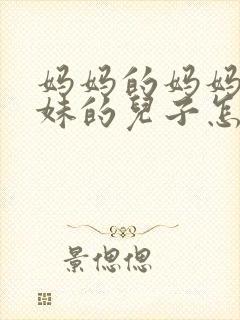 妈妈的妈妈
妹的兒子怎
景偲偲